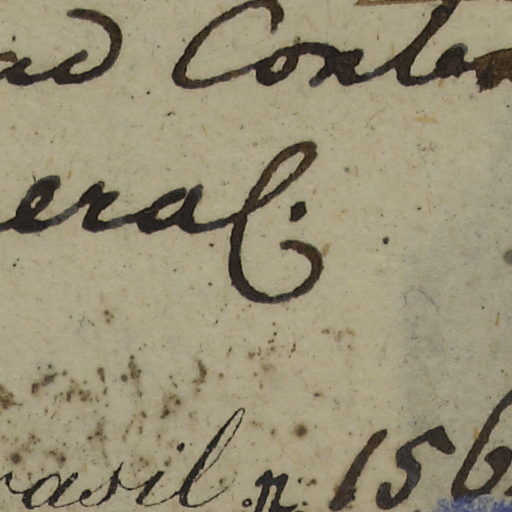 ad Conten
eral.
rasil n 156